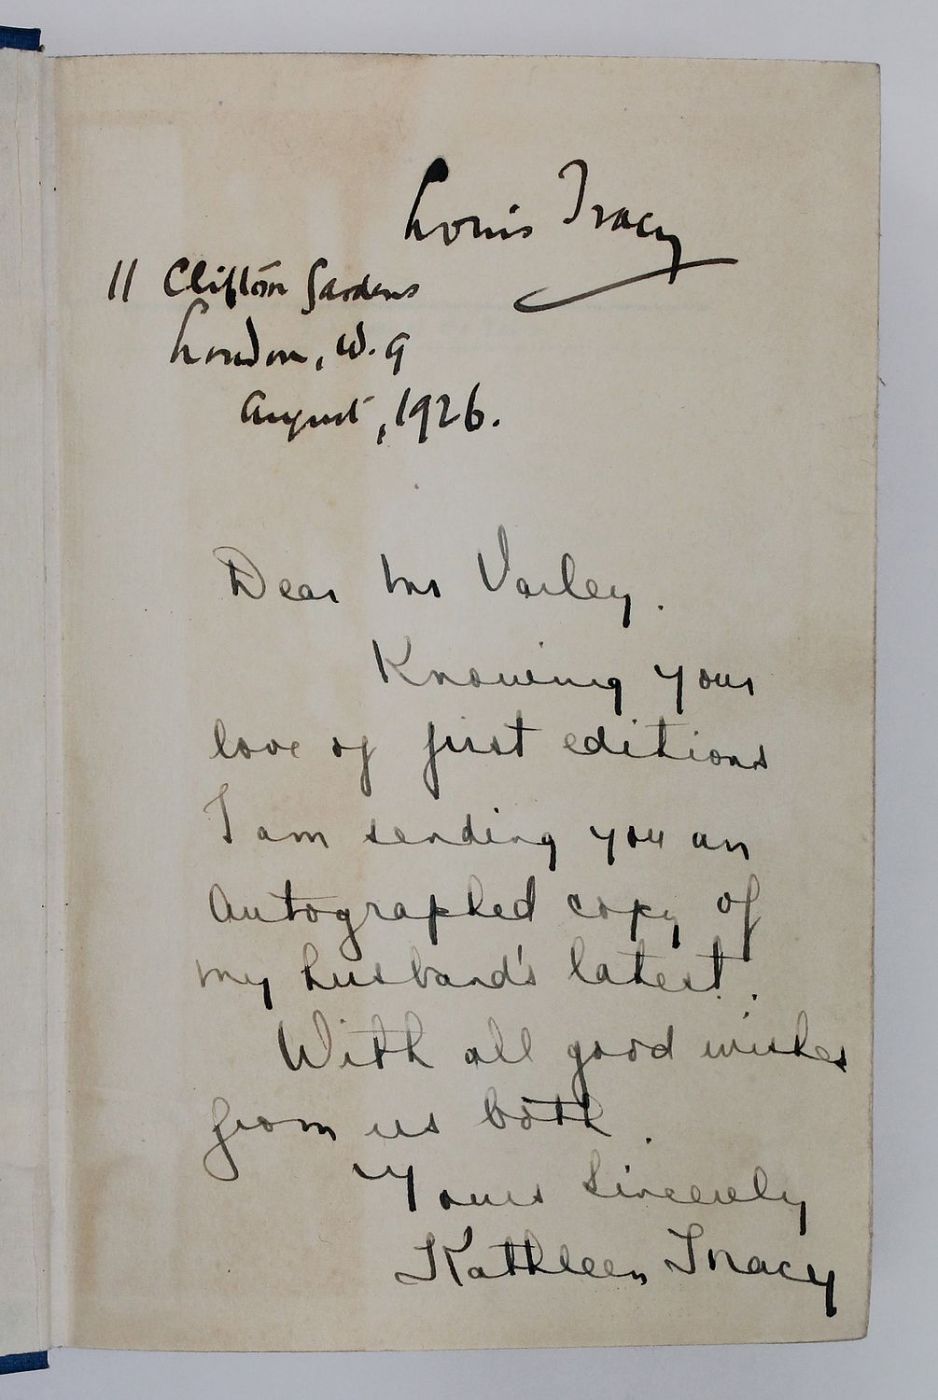 Louis Tracy
11 Clifton Gardens
London, W. 9
August, 1926.
Dear Mr Varley.
Knowing your
love of first editions
I am sending you an
Autographed copy of
my husband's latest.
With all good wishes
from us both.
Yours Sincerely
Kathleen Tracy